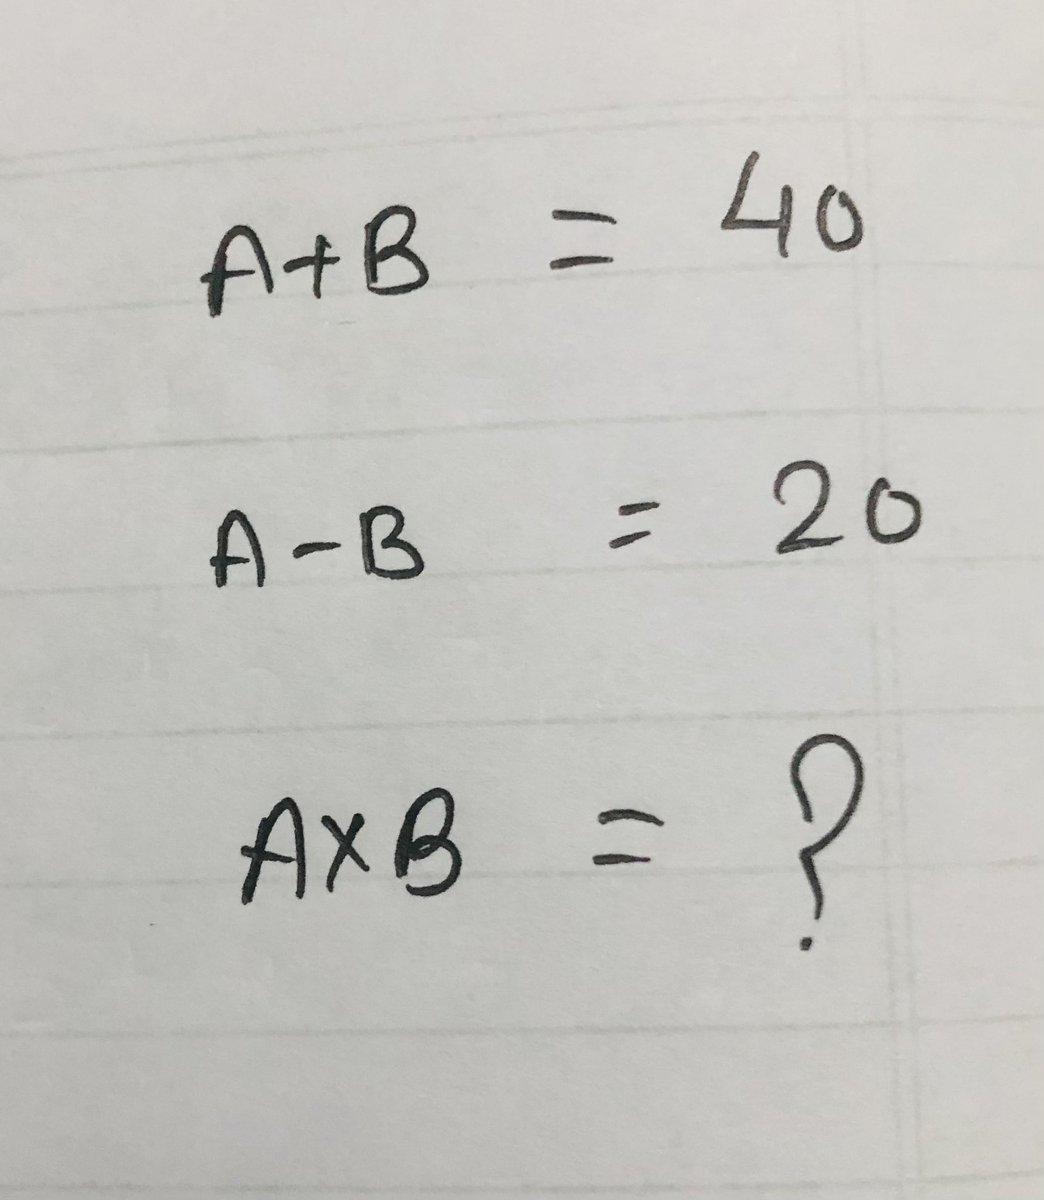 A+B = 40
A-B = 20
A×B = ?